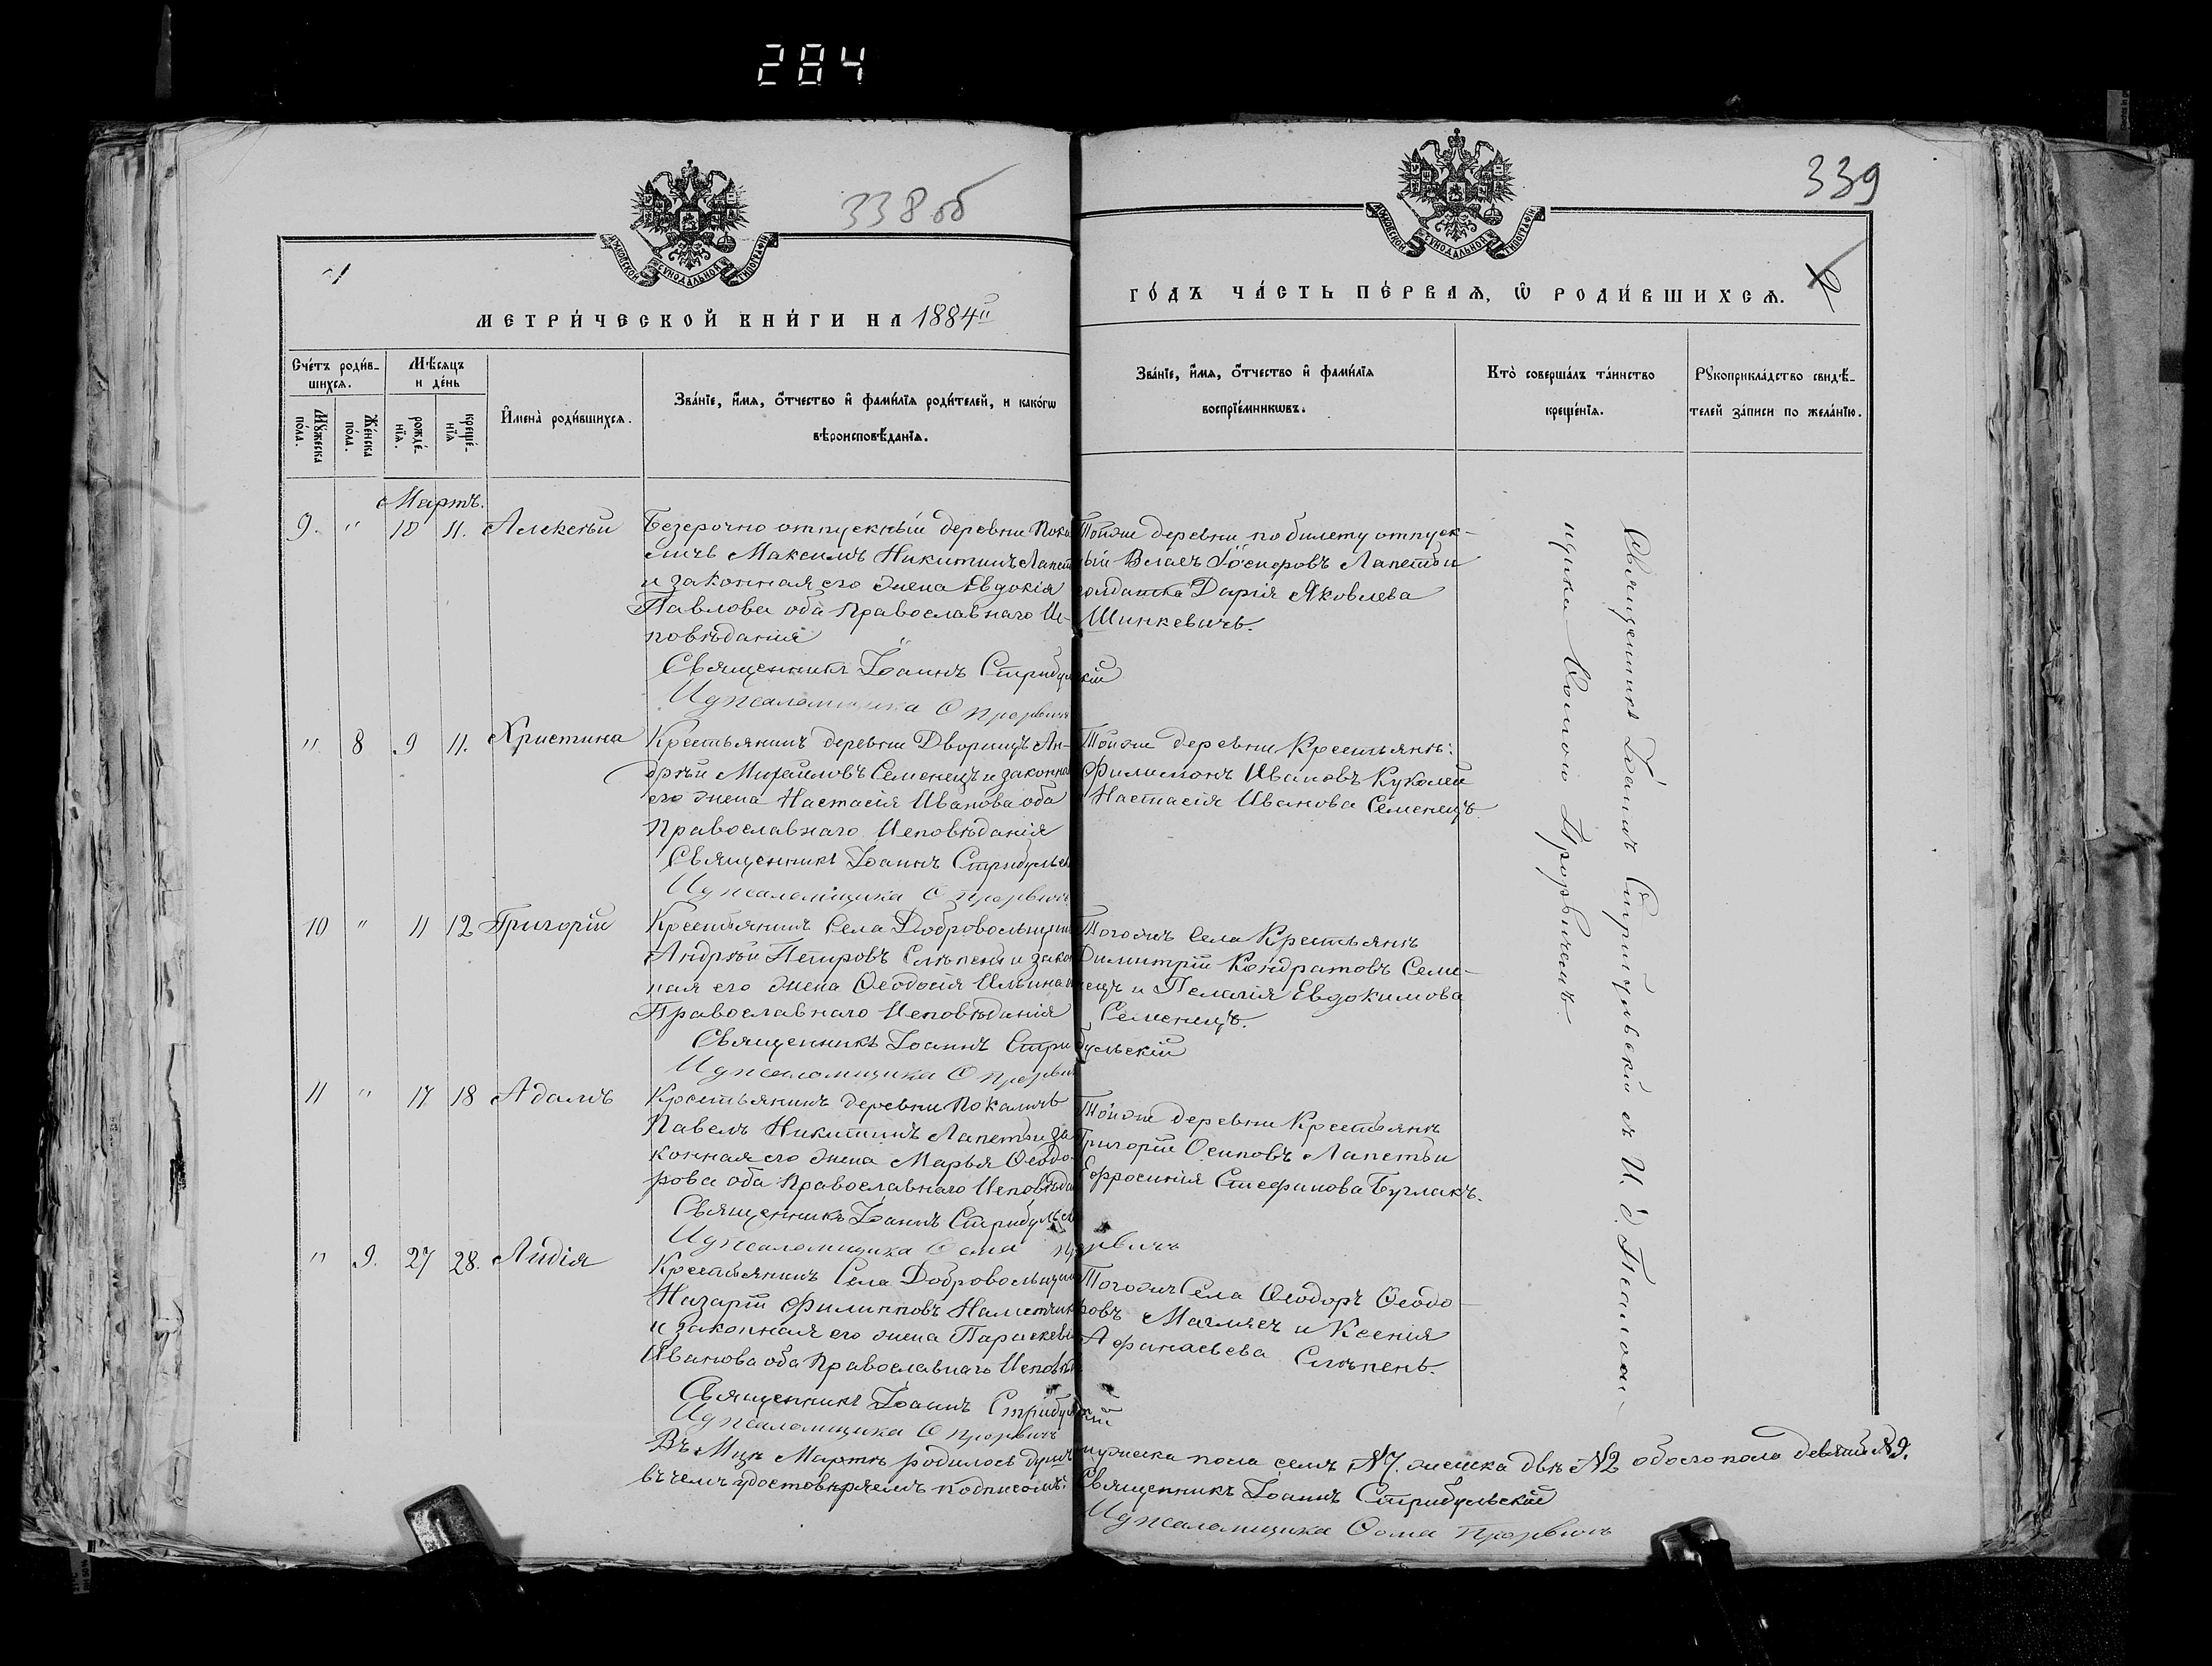 284
338 об
339
МОСКОВСКОЙ СУНОДАЛЬНОЙ ТИПОГРАФІИ
МОСКОВСКОЙ СУНОДАЛЬНОЙ ТИПОГРАФІИ
МЕТРИ́ЧЕСКОЙ КНИ́ГИ НА 1884й
ГО́ДЪ ЧА́СТЬ ПЕ́РВАЯ, Ѡ РОДИ́ВШИХСЯ.
Сче́тъ роди́в-
шихся.
Мѣ́сяцъ
и де́нь
Му́жеска по́ла.
Же́нска по́ла.
рожде́-
нїя.
креще́-
нїя
Имена̀ роди́вшихся.
Зва́нїе, и́мя, о́тчество и фами́лїя роди́телей, и како́гѡ
вѣроисповѣ́данїя.
Зва́нїе, и́мя, о́тчество и фами́лїя
воспрїе́мникѡвъ.
Кто̀ соверша́лъ та́инство
креще́нїя.
Рукоприкла́дство свидѣ́-
телей за́писи по жела́нїю.
Мартъ.
9. " 10 11. Алексѣй
Безсрочно отпускный деревни Пока
личъ Максимъ Никитинъ Лапет
и законная его жена Евдокія
Павлова оба Православнаго Ис-
повѣданія
Священникъ Іоаннъ Стрибульскій
И д Псаломщика Ѳ Прорвичъ
Тойже деревни по билету отпуск-
ный Власъ Іосифовъ Лапетъ и
солдатка Дарія Яковлева
Шинкевичъ.
" 8 9 11. Христина
Крестьянинъ деревни Дворищъ Ан-
дрѣй Михаиловъ Семенецъ и законна
его жена Настасія Иванова оба
Православнаго Исповѣданія
Священникъ Іоаннъ Стрибульск
И д Псаломщика Ѳ Прорвичъ
Тойже деревни Крестьянъ:
Филимонъ Ивановъ Куколей
Настасія Иванова Семенецъ
10 " 11 12 Григорій
Крестьянинъ Села Добровольщин
Андрѣй Петровъ Слѣпень и зако
ная его жена Ѳеодосія Ильина
Православнаго Исповѣданія
Священникъ Іоаннъ Стрибульскій
И д Псаломщика Ѳ Прорвич
Тогожъ Села Крестьянъ
Димитрій Кондратовъ Семе-
нецъ и Пелагія Евдокимова
Семенецъ.
11 " 17 18 Адамъ
Крестьянинъ деревни Покаличъ
Павелъ Никитинъ Лапетъ и за
конная его жена Марья Ѳеодо-
рова оба Православнаго Исповѣда
Священникъ Іоаннъ Стрибульск
И д Псаломщика Ѳома Прорвичъ
Тойже деревни Крестьянъ
Григорій Осиповъ Лапетъ и
Ефросинія Стефанова Бурлакъ.
" 9. 27 28. Лидія
Крестьянинъ Села Добровольщин
Назарій Филипповъ
и законная его жена Параскева
Иванова оба Православнаго Исповѣ
Священникъ Іоаннъ Стрибульскій
И д Псаломщика Ѳ Прорвичъ
Тогожъ Села Ѳеодоръ Ѳеодо-
ровъ и Ксенія
Афанасьева Слѣпень.
Священникъ Іоаннъ Стрибульскій съ И. д. Псаломщика Ѳомою Прорвичемъ.
Въ Мцѣ Мартѣ родилось душъ мужеска пола семь №7. женска двѣ №2 обоего пола девять №9.
въ чемъ удостовѣряемъ подписомъ: Священникъ Іоаннъ Стрибульскій
И д Псаломщика Ѳома Прорвичъ